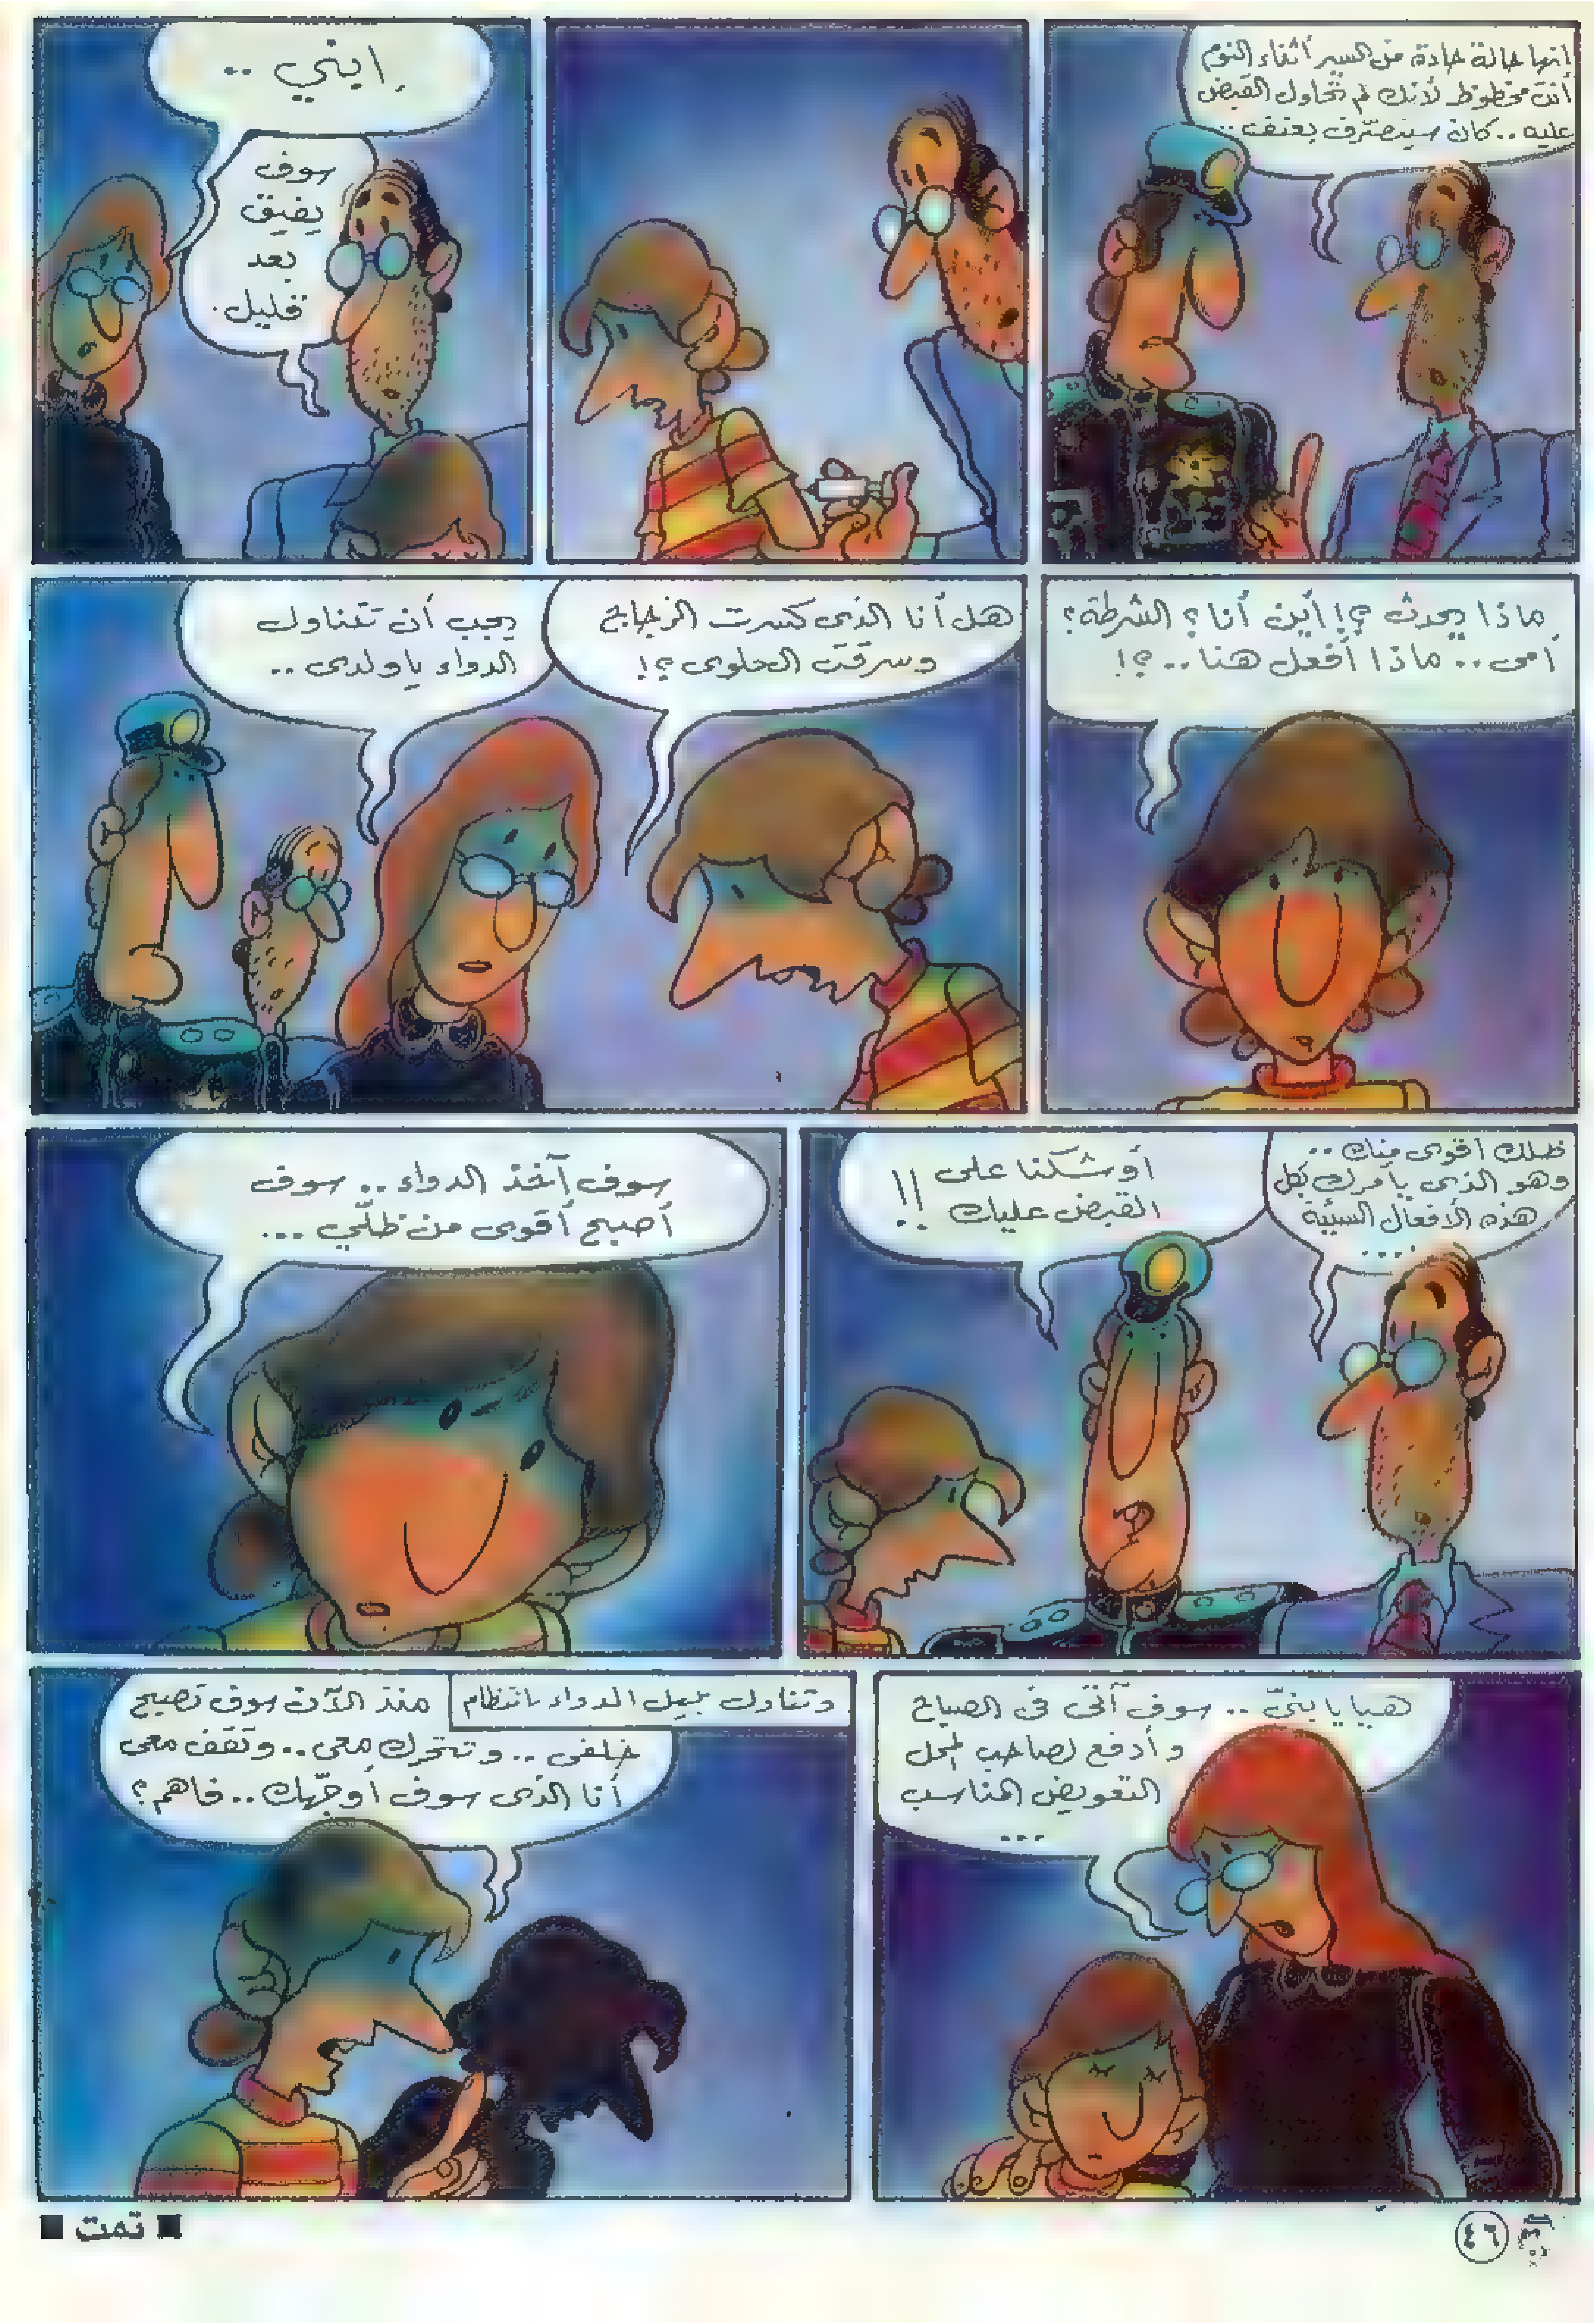 إنها حالة حادة من السير أثناء النوم
أنت محظوظ لأنك لم تحاول القبض
عليه.. كان سيتصرف بعنف..
إبني ..
سوف
يفيق
بعد
قليل.
ماذا يحدث ؟! أين أنا ؟ الشرطة ؟
أمى.. ماذا أفعل هنا..؟!
هل أنا الذى كسرت الزجاج
وسرقت الحلوى ؟!
يجب أن تتناول
الدواء ياولدى ..
ظلك أقوى منك ..
وهو الذى يأمرك بكل
هذه الأفعال السيئة
....
أوشكنا على
القبض عليك !!
سوف آخذ الدواء .. سوف
أصبح أقوى من ظلّي ...
هيا يا بنيّ .. سوف آتى فى الصباح
وأدفع لصاحب المحل
التعويض المناسب
...
وتناول نبيل الدواء بانتظام
منذ الآن سوف تصبح
خلفى .. وتتحرك معى.. وتقف معى
أنا الذى سوف أوجّهك.. فاهم؟
٤٦
■ تمت ■